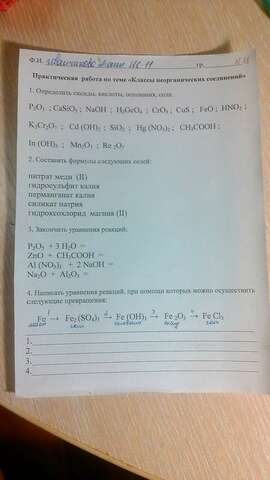 Ф.И.
гр.
Практическая работа по теме «Классы неорганических соединений»
1. Определить оксиды, кислоты, основания, соли.
P₂O₃ ; CaSiO₃ ; NaOH ; H₂GeO₄ ; CrO₃ ; CuS ; FeO ; HNO₂ ;
K₂Cr₂O₇ ; Cd (OH)₂ ; SiO₂ ; Hg (NO₃)₂ ; CH₃COOH ;
In (OH)₃ ; Mn₂O₇ ; Re ₂O₇
2. Составить формулы следующих солей:
нитрат меди (II)
гидросульфит калия
перманганат калия
силикат натрия
гидроксохлорид магния (II)
3. Закончить уравнения реакций:
P₂O₅ + 3 H₂O =
ZnO + CH₃COOH =
Al (NO₃)₃ + 2 NaOH =
Na₂O + Al₂O₃ =
4. Написать уравнения реакций, при помощи которых можно осуществить
следующие превращения:
Fe 1→ Fe₂ (SO₄)₃ 2→ Fe (OH)₃ 3→ Fe ₂O₃ 4→ Fe Cl₃
соли основание оксид соли
1.
2.
3.
4.